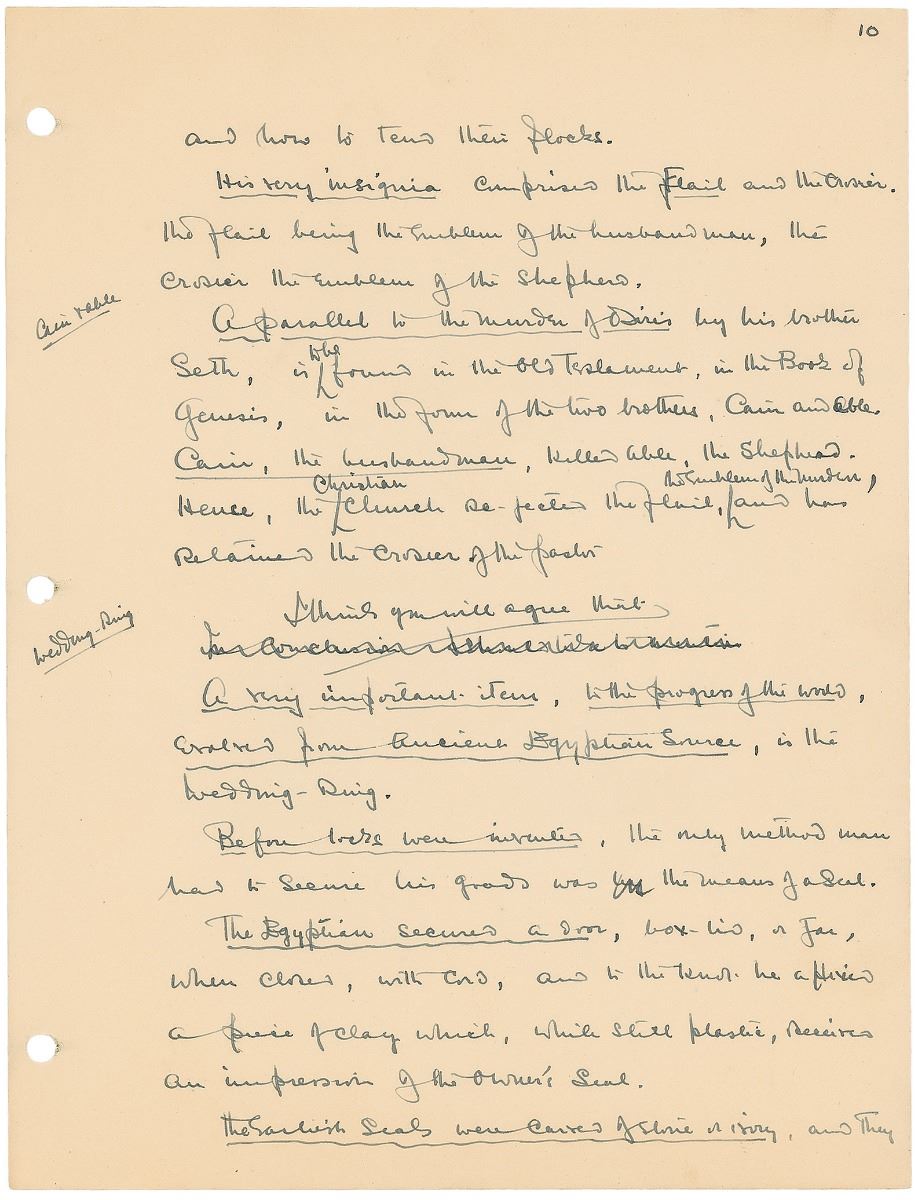 10
and how to tend their flocks.
His very insignia comprised the Flail and the Crosier.
the flail being the Emblem of the husbandman, the
Crosier the Emblem of the Shepherd.
Cain & Able
A parallel to the murder of Osiris by his brother
Seth, is to be found in the Old Testament, in the Book of
Genesis, in the form of the two brothers, Cain and Able.
Cain, the husbandman, killed Able, the Shepherd.
Christian the Emblem of the murderer,
Hence, the Church re-jected the flail, and has
Retained the Crosier of the pastor
I think you will agree that
Wedding-Ring
In Conclusion
A very important item, to the progress of the world,
Evolved from Ancient Egyptian Source, is the
Wedding-Ring.
Before locks were invented, the only method man
had to Secure his goods was the means of a Seal.
The Egyptian secured a door, box-lid, or Jar,
When closed, with Cord, and to the knot he affixed
a piece of clay which, while still plastic, received
an impression of the Owner's Seal.
The Earliest Seals were Carved of Stone or ivory, and they